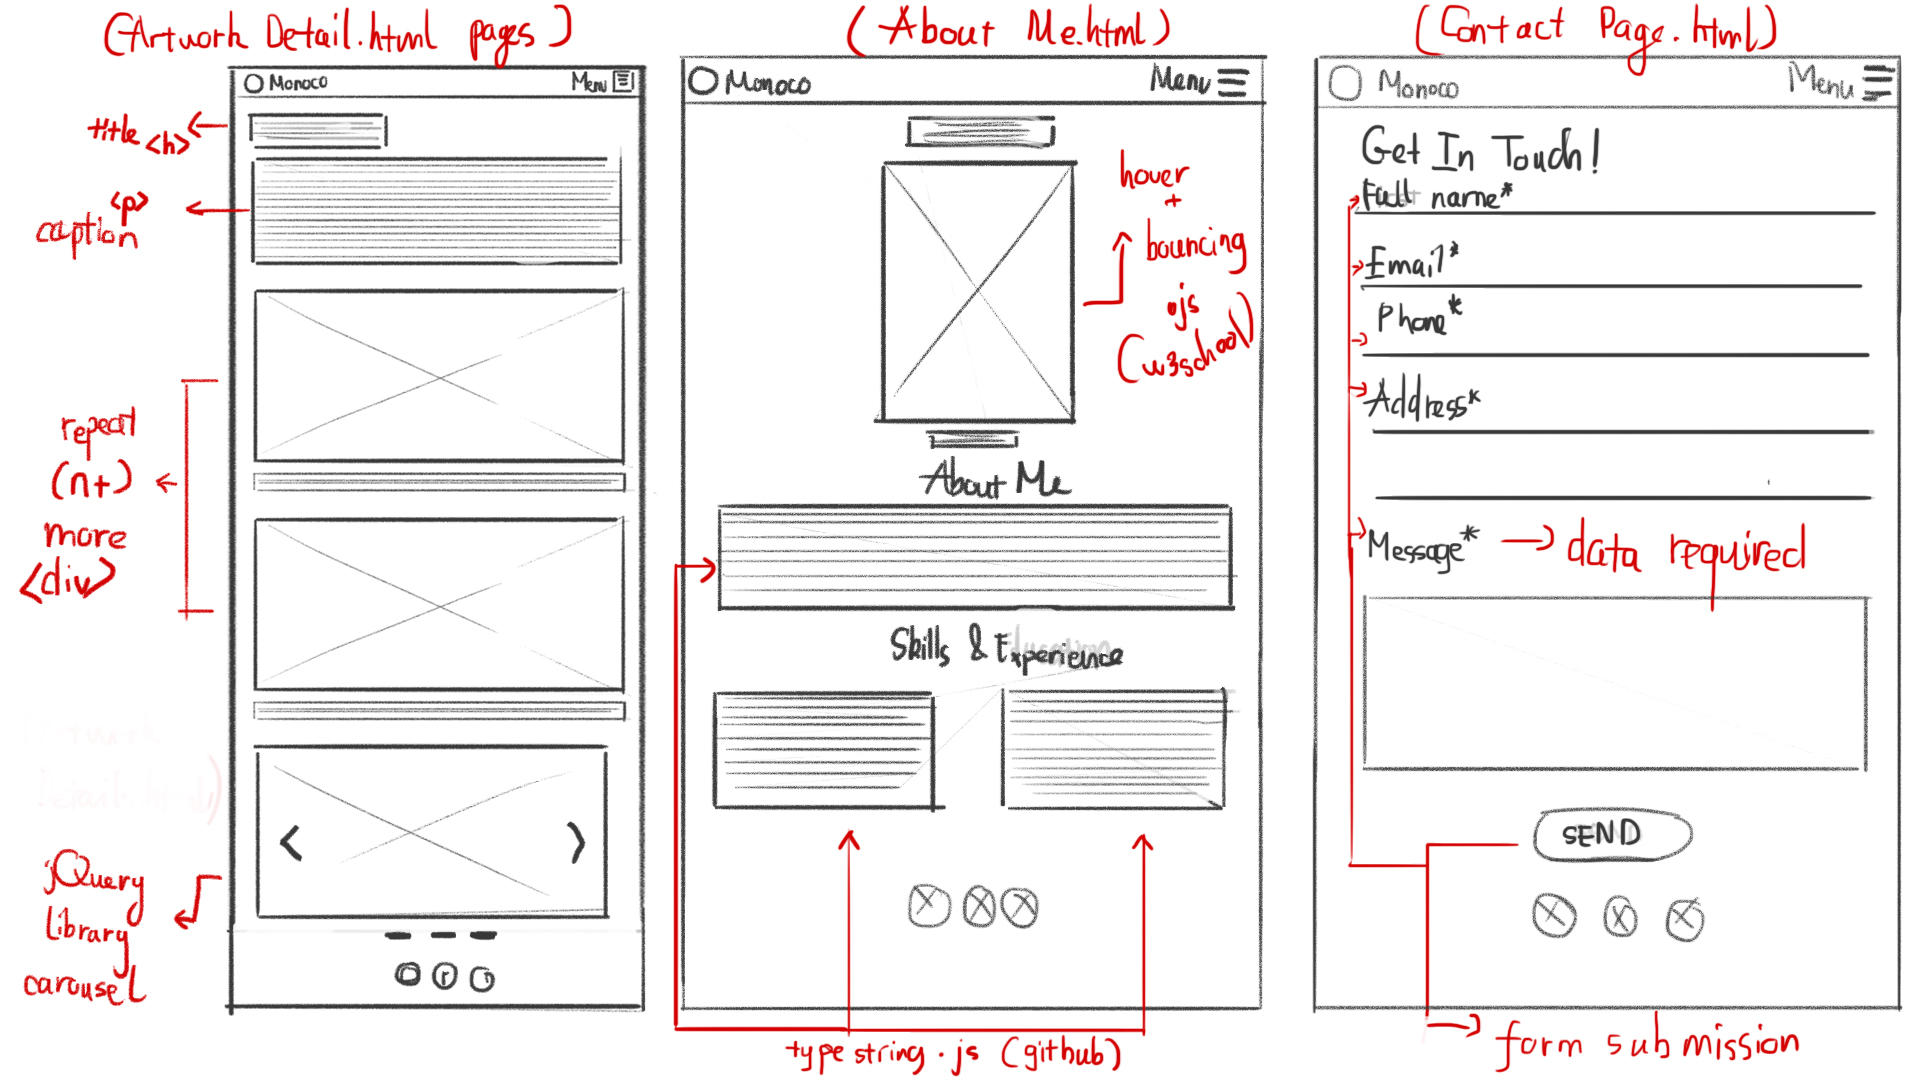 (Artwork Detail.html pages)
Monoco
Menu
title <h>
<p>
caption
repeat
(n+)
more
<div>
jQuery
library
carousel
(About Me.html)
Monoco
Menu
hover
+
bouncing
.js
(w3school)
About Me
Skills & Experience
typestring.js (github)
(Contact Page.html)
Monoco
Menu
Get In Touch!
Full name*
Email*
Phone*
Address*
Message*
data required
SEND
form submission